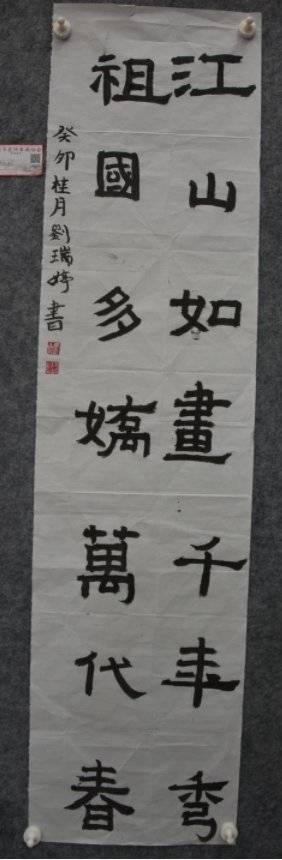 江山如畫千年秀
祖國多嬌萬代春
癸卯桂月劉瑞婷書